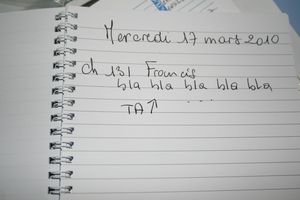 Mercredi 17 mars 2010
ch 131 Francis
bla bla bla bla bla
TA↑ ...